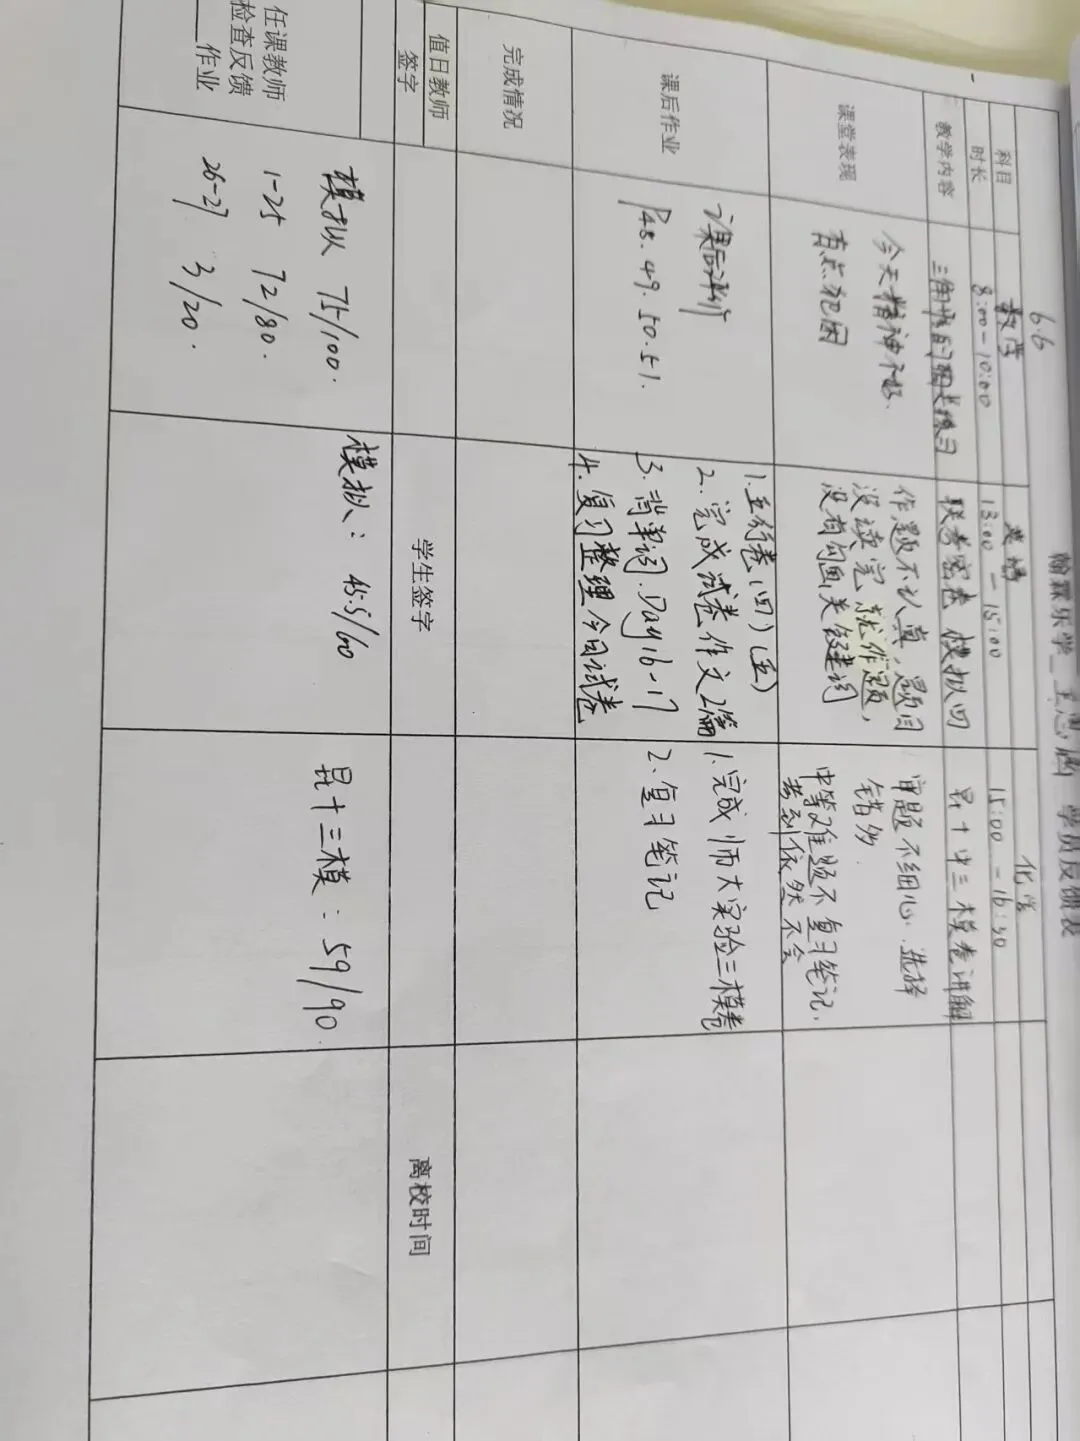 翰霖乐学 王思涵 学员反馈表
6.6
科目 数学 英语 化学
时长 8:00-10:00 13:00-15:00 15:00-16:30
教学内容 三角形的相关练习 联考密卷 模拟四 昆十中三模卷讲解
课堂表现
今天精神不好、
有点犯困
作题不认真,题目
没读完就作题,
没有勾画关键词
审题不细心、选择
错多.
中等难题不复习笔记、
考到依然不会
课后作业
课后评价
P48.49.50.51.
1.五行卷(四)(五)
2.完成试卷作文2篇
3.背单词.Day16-17
4.复习整理今日试卷
1.完成师大实验三模卷
2.复习笔记
完成情况
值日教师
签字
学生签字
离校时间
任课教师
检查反馈
作业
模拟 75/100.
1-25 72/80.
26-27 3/20.
模拟:45.5/60
昆十三模:59/90.